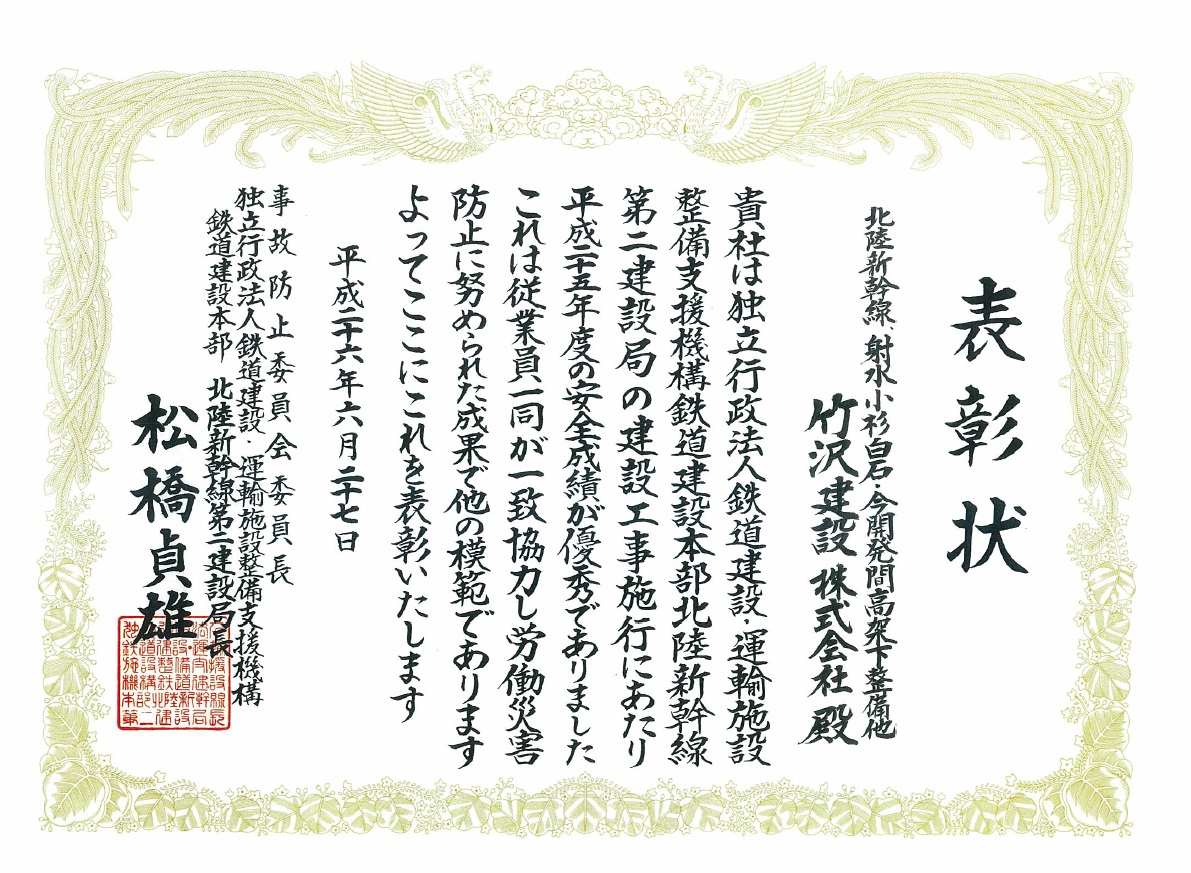 表彰状
北陸新幹線、射水小杉白石・今開発間高架下整備他
竹沢建設株式会社殿
貴社は独立行政法人鉄道建設・運輸施設
整備支援機構鉄道建設本部北陸新幹線
第二建設局の建設工事施行にあたり
平成二十五年度の安全成績が優秀でありました
これは従業員一同が一致協力し労働災害
防止に努められた成果で他の模範であります
よってここにこれを表彰いたします
平成二十六年六月二十七日
事故防止委員会委員長
独立行政法人鉄道建設・運輸施設整備支援機構
鉄道建設本部 北陸新幹線第二建設局長
松橋貞雄